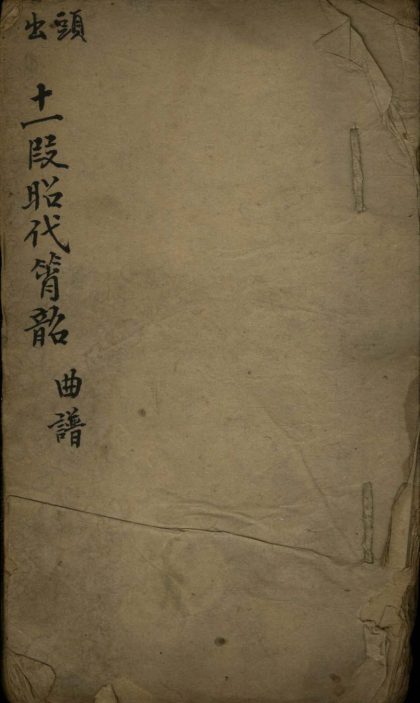 頭出
十一段昭代簫韶
曲譜